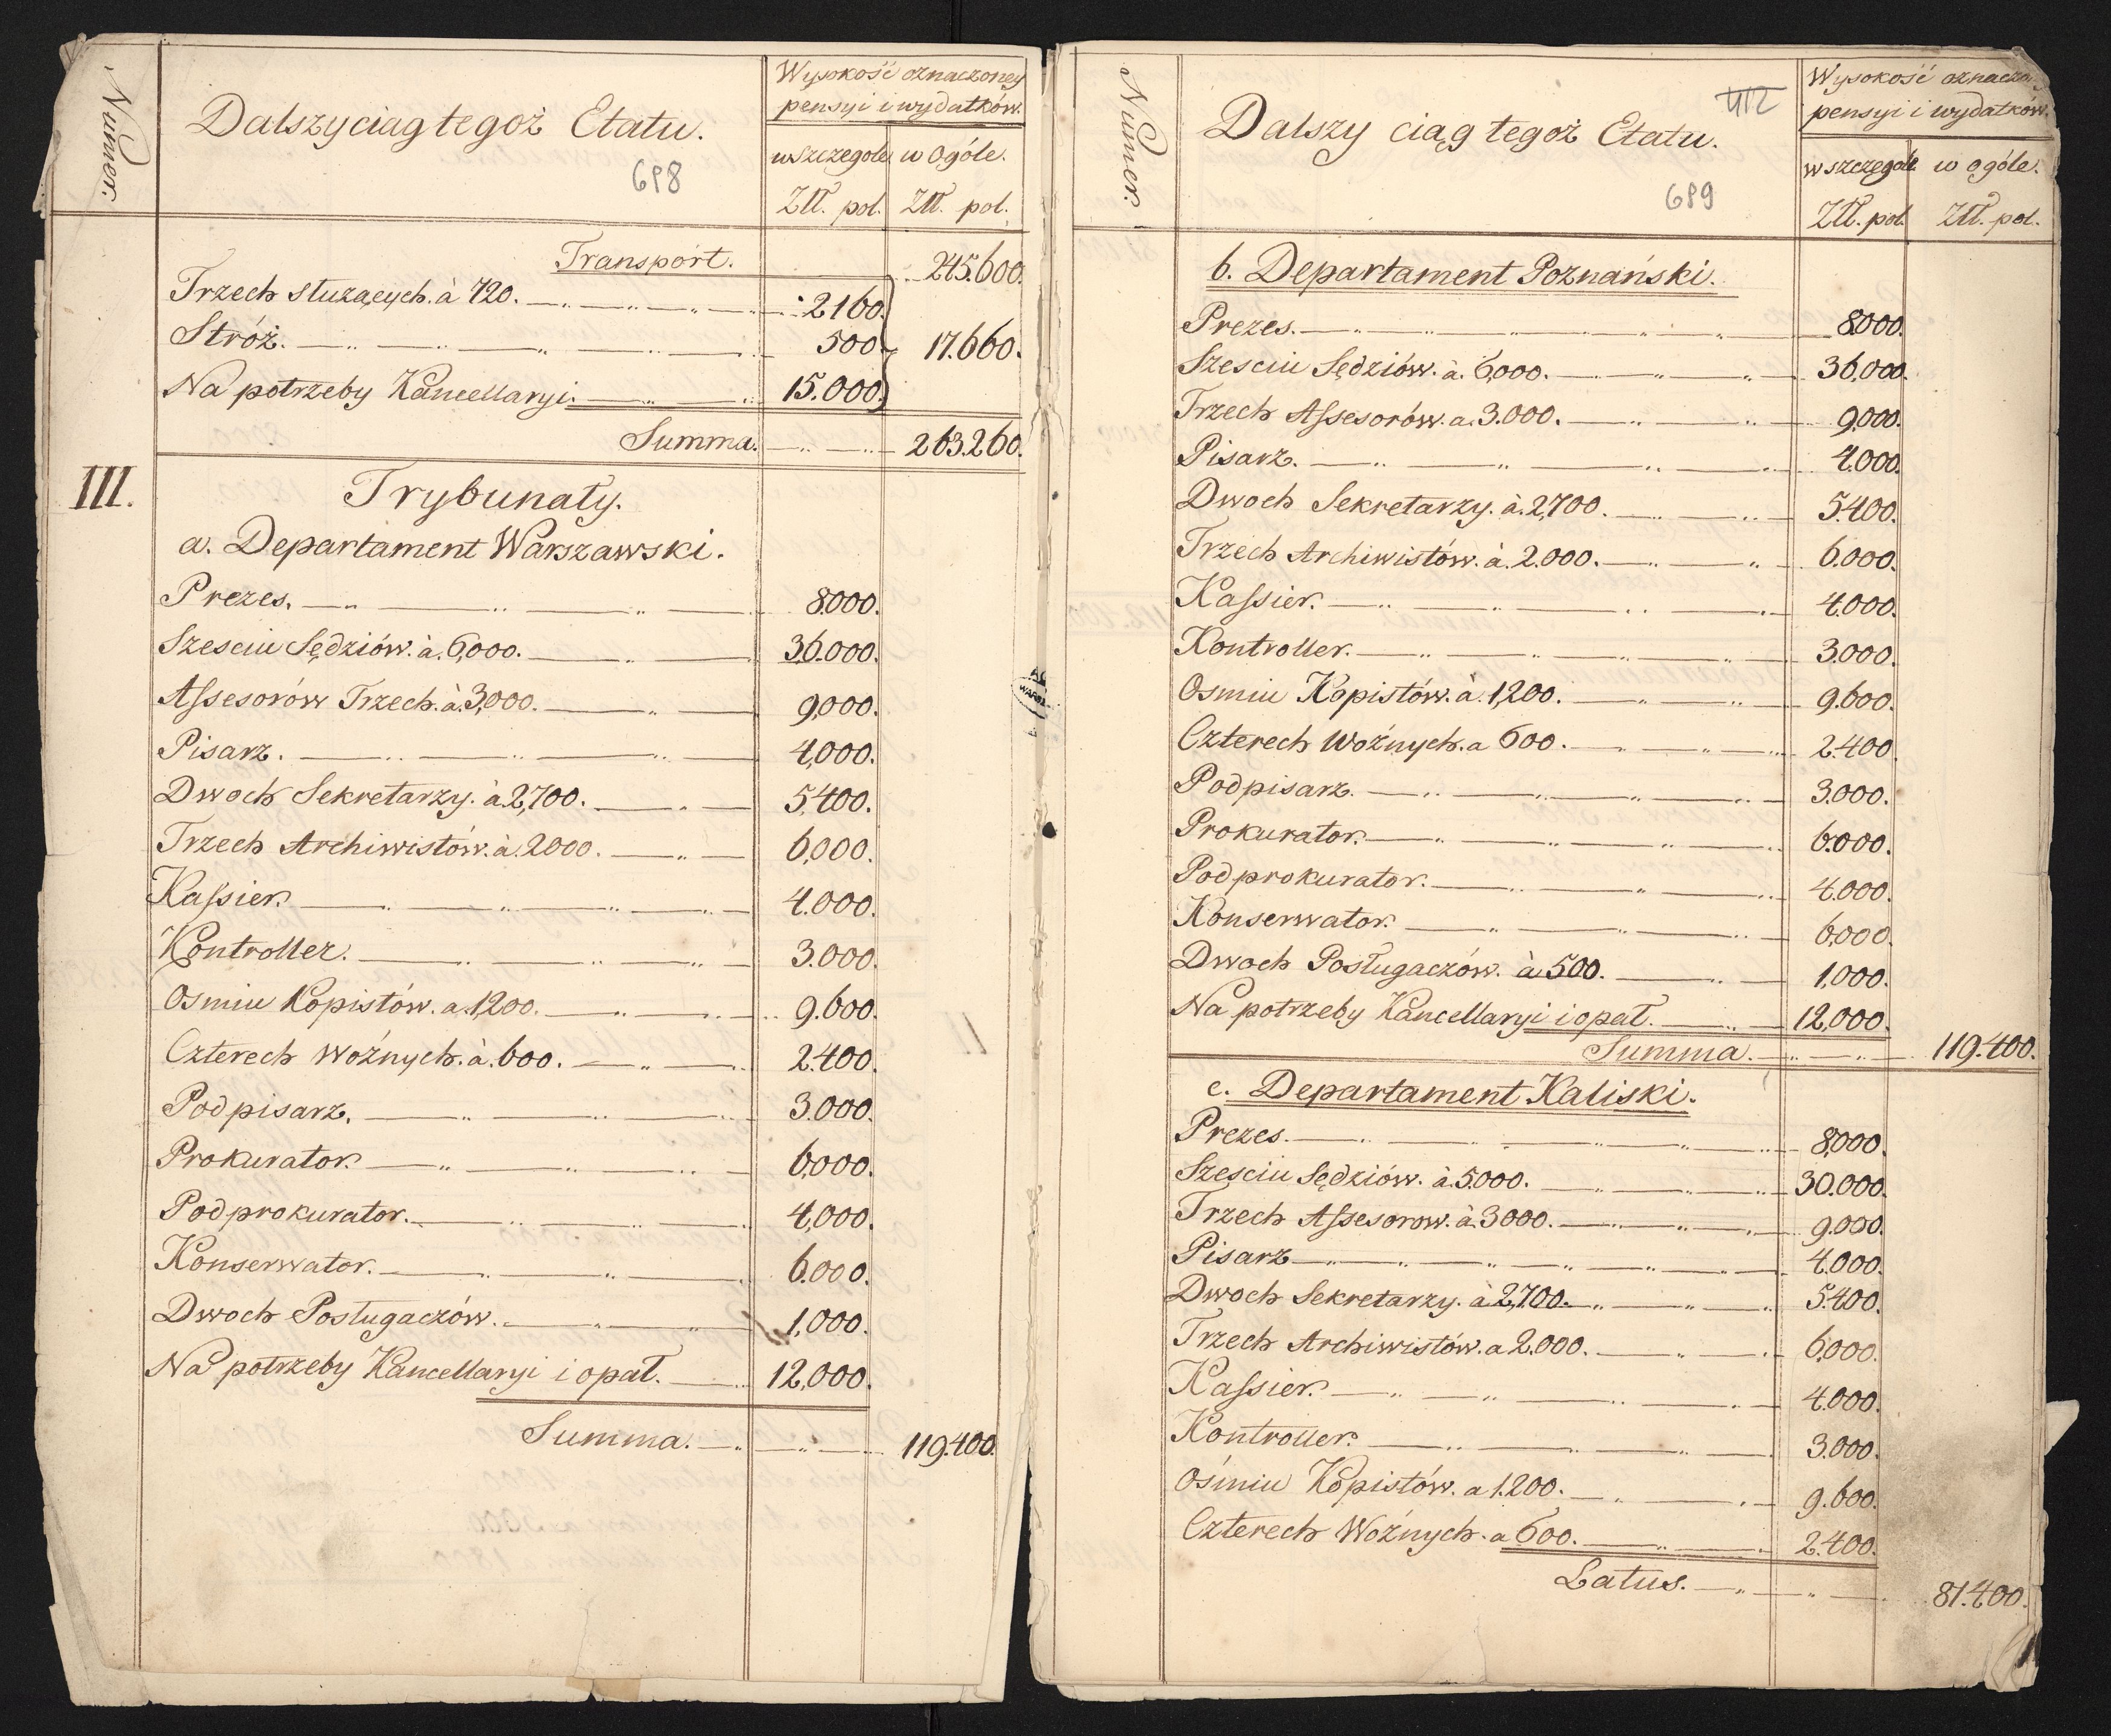 Numer.
Dalszy ciąg tegoż Etatu.
698
Wysokość oznaczoney
pensyi i wydatków.
w szczegole w Ogóle.
Złł. pol. Złł. pol.
Transport. 245.600.
Trzech służących. à 720. 2160.
Stróż. 500. 17.660.
Na potrzeby Kancellaryi. 15.000.
Summa. 263.260.
III.
Trybunały.
a. Departament Warszawski.
Prezes. 8.000.
Szesciu Sędziów. à. 6,000. 36.000.
Assesorów Trzech. à. 3,000. 9,000.
Pisarz. 4,000.
Dwoch Sekretarzy. à. 2,700. 5,400.
Trzech Archiwistów. à. 2000. 6,000.
Kassier. 4.000.
Kontroller. 3.000.
Osmiu Kopistów. a. 1,200. 9.600.
Czterech Woźnych. à. 600. 2.400.
Podpisarz. 3.000.
Prokurator. 6,000.
Podprokurator. 4,000.
Konserwator. 6.000.
Dwoch Posługaczów. 1,000.
Na potrzeby Kancellaryi i opał. 12,000.
Summa. 119.400.
Numer.
Dalszy ciąg tegoż Etatu.
412
689
Wysokość
pensyi i wydatków.
w szczegole w ogóle.
Złł. pol. Złł. pol.
b. Departament Poznański.
Prezes. 8.000.
Szesciu Sędziów. à. 6,000. 36,000.
Trzech Assesorów. a. 3.000. 9,000.
Pisarz. 4.000.
Dwoch Sekretarzy. à. 2,700. 5.400.
Trzech Archiwistów. à. 2.000. 6.000.
Kassier. 4.000.
Kontroller. 3.000.
Osmiu Kopistów. à. 1,200. 9.600.
Czterech Woźnych. a 600. 2.400
Podpisarz. 3.000.
Prokurator. 6.000.
Podprokurator. 4.000.
Konserwator. 6,000.
Dwoch Posługaczów. à 500. 1,000.
Na potrzeby Kancellaryi i opał. 12,000.
Summa. 119.400.
c. Departament Kaliski.
Prezes. 8,000.
Szesciu Sędziów. à 5.000. 30.000.
Trzech Assesorow. à. 3000. 9.000.
Pisarz 4.000.
Dwoch Sekretarzy. à 2,700. 5.400.
Trzech Archiwistów. a 2.000. 6,000.
Kassier. 4.000.
Kontroller. 3.000.
Ośmiu Kopistów. a 1.200. 9.600.
Czterech Woźnych. a 600. 2.400.
Latus. 81.400.